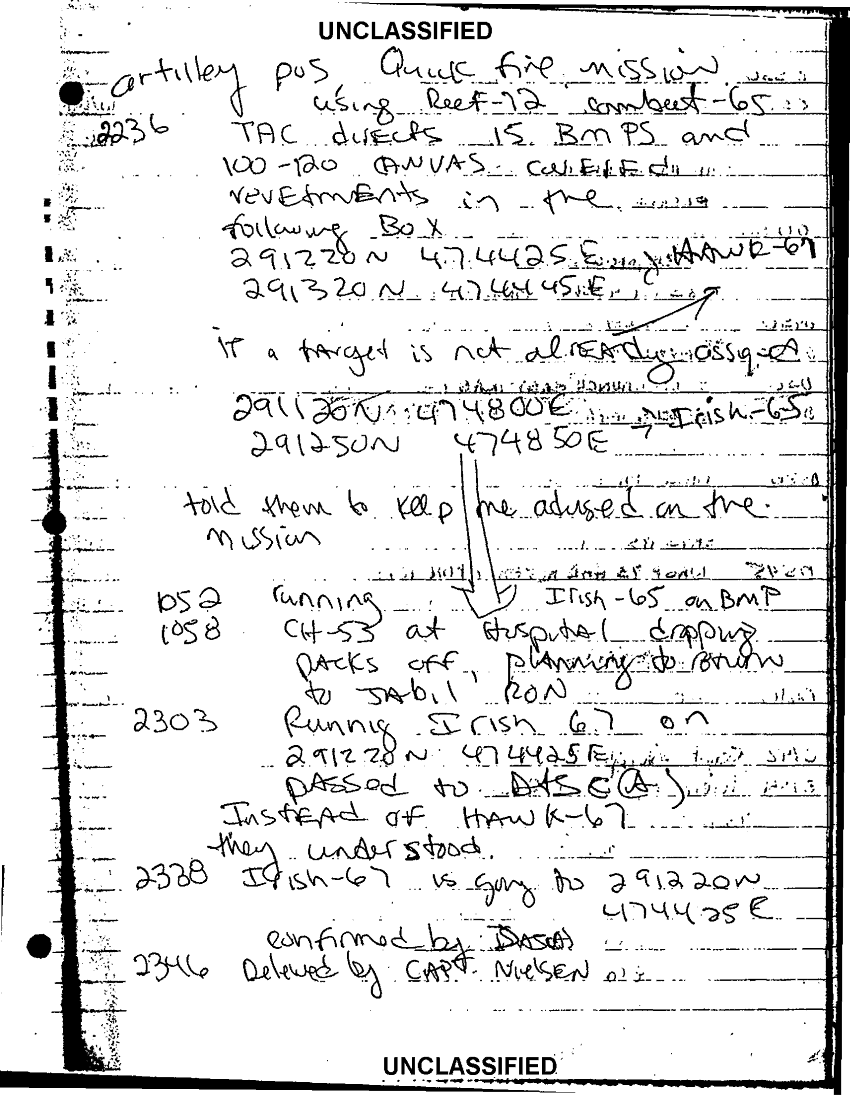 UNCLASSIFIED
artilley pos Quick fire mission
using Reef-72 combeet-65
2236 TAC directs 15 BMPS and
100-120 CANVAS COVERED
revetments in the
following Box
291220N 474425E HAWK-67
291320N 474445E
if a target is not alREADy assigned
291120N 474800E Irish-65
291250N 474850E
told them to keep me advised on the
mission
1052 running Irish-65 on BMP
1058 CH-53 at Hospital dropping
PACKS off, planning to return
to JAbil RON
2303 Running Irish 67 on
291220N 474425E
PASSED to DASC(A)
InstEAd of HAWK-67
they understood.
2338 Irish-67 is going to 291220N
474425E
confirmed by DASC(A)
2346 Relieved by CAPT NielSEN
UNCLASSIFIED